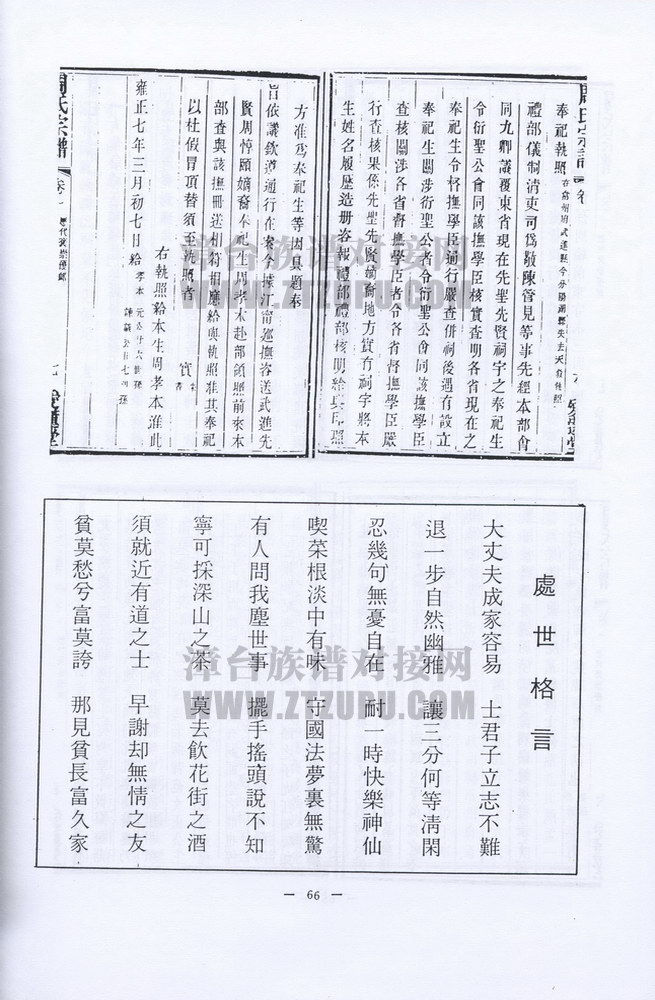 奉祀執照
禮部儀制清吏司爲敬陳管見等事先經本部會
同九卿議覆東省現在先聖先賢祠宇之奉祀生
令衍聖公會同該撫學臣核實查明各省現在之
奉祀生令督撫學臣通行嚴查併祠後遇有設立
奉祀生關涉衍聖公者令衍聖公會同該撫學臣
查核關涉各省督撫學臣者令各省督撫學臣嚴
行查核果係先聖先賢嫡裔地方實有祠宇將本
生姓名履歷造册咨報禮部禮部核明給與印照
方准爲奉祀生等因具題奉
旨依議欽遵通行在案今據江甯巡撫咨送武進先
賢周惇頤嫡裔奉祀生周孝本赴部領照前來本
部查與該撫冊送相符相應給與執照准其奉祀
以杜假冒頂替須至執照者
右執照給本生周孝本准此
雍正七年三月初七日給
周氏宗譜
處世格言
大丈夫成家容易 士君子立志不難
退一步自然幽雅 讓三分何等清閑
忍幾句無憂自在 耐一時快樂神仙
喫菜根淡中有味 守國法夢裏無驚
有人問我塵世事 擺手搖頭說不知
寧可採深山之茶 莫去飲花街之酒
須就近有道之士 早謝却無情之友
貧莫愁兮富莫誇 那見貧長富久家
— 66 —
漳台族谱对接网
WWW.ZTZUPU.COM
漳台族谱对接网
WWW.ZTZUPU.COM